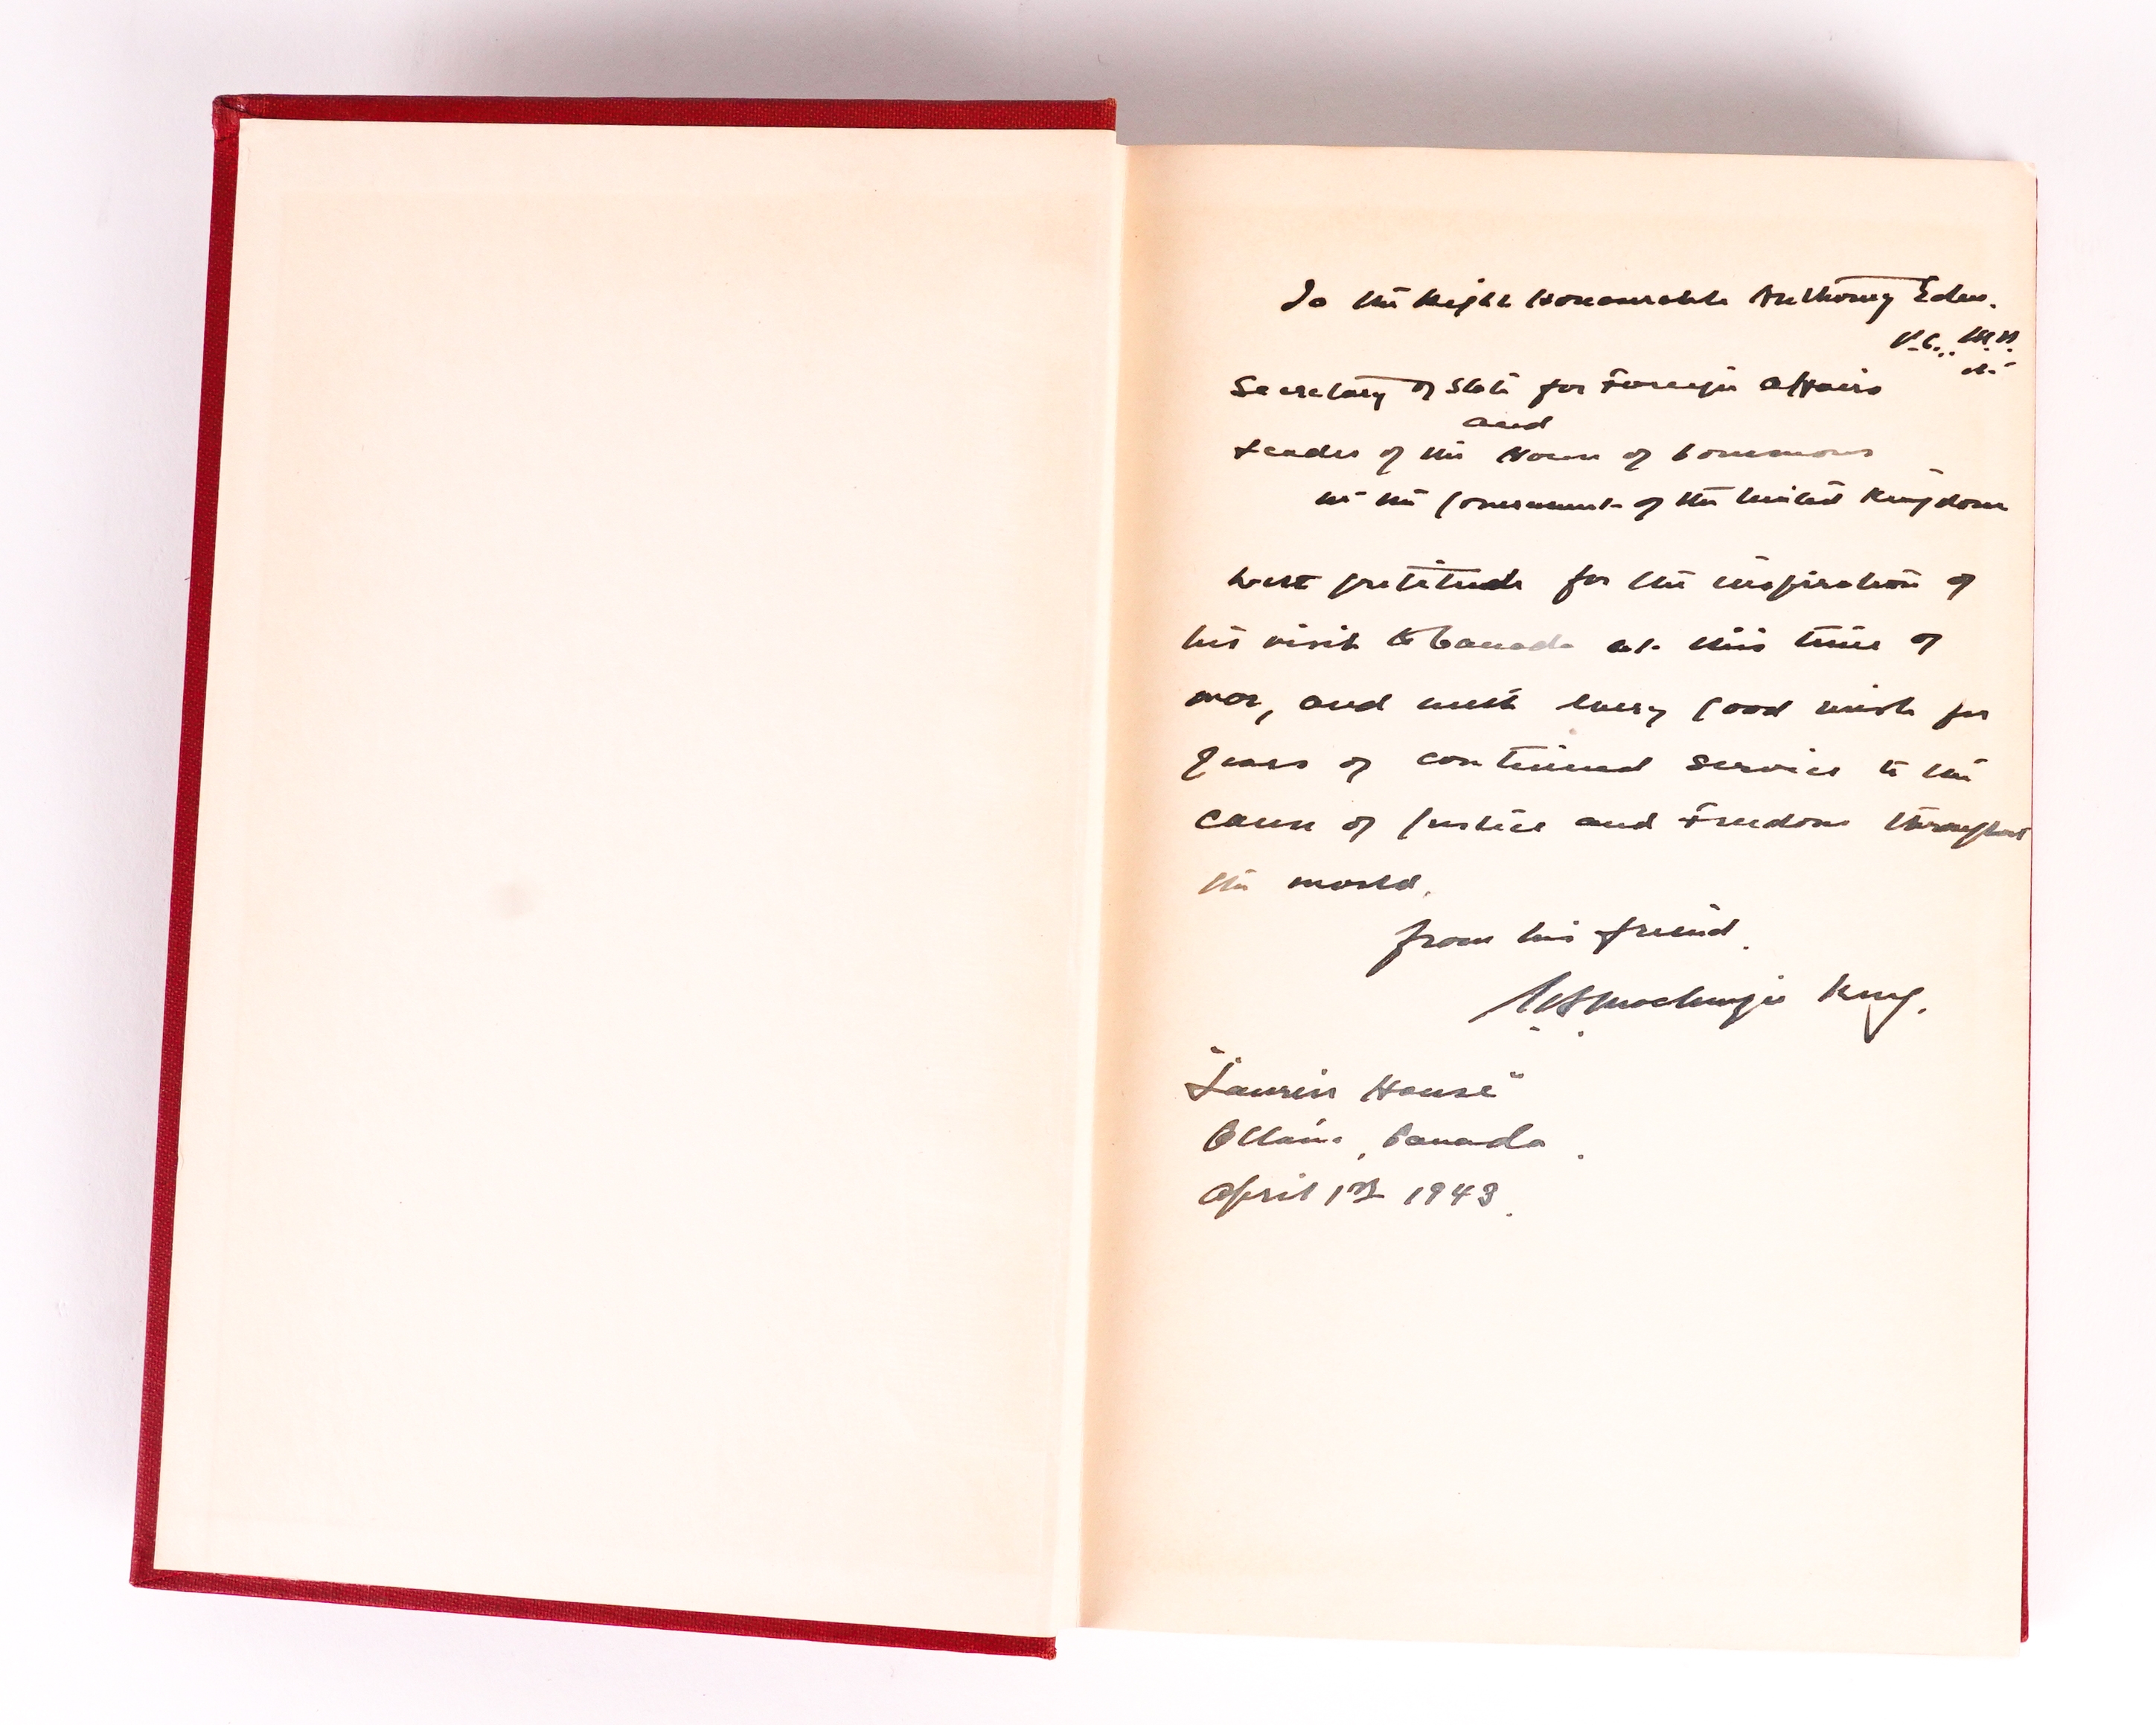 To the Right Honourable Anthony Eden.
P.C., M.P.
etc.
Secretary of State for Foreign Affairs
and
Leader of the House of Commons
in the Government of the United Kingdom
with gratitude for the inspiration of
his visit to Canada at this time of
war, and with every good wish for
years of continued service to the
cause of Justice and Freedom throughout
the world.
from his friend.
W.L. Mackenzie King.
"Laurier House"
Ottawa, Canada.
April 1st 1943.